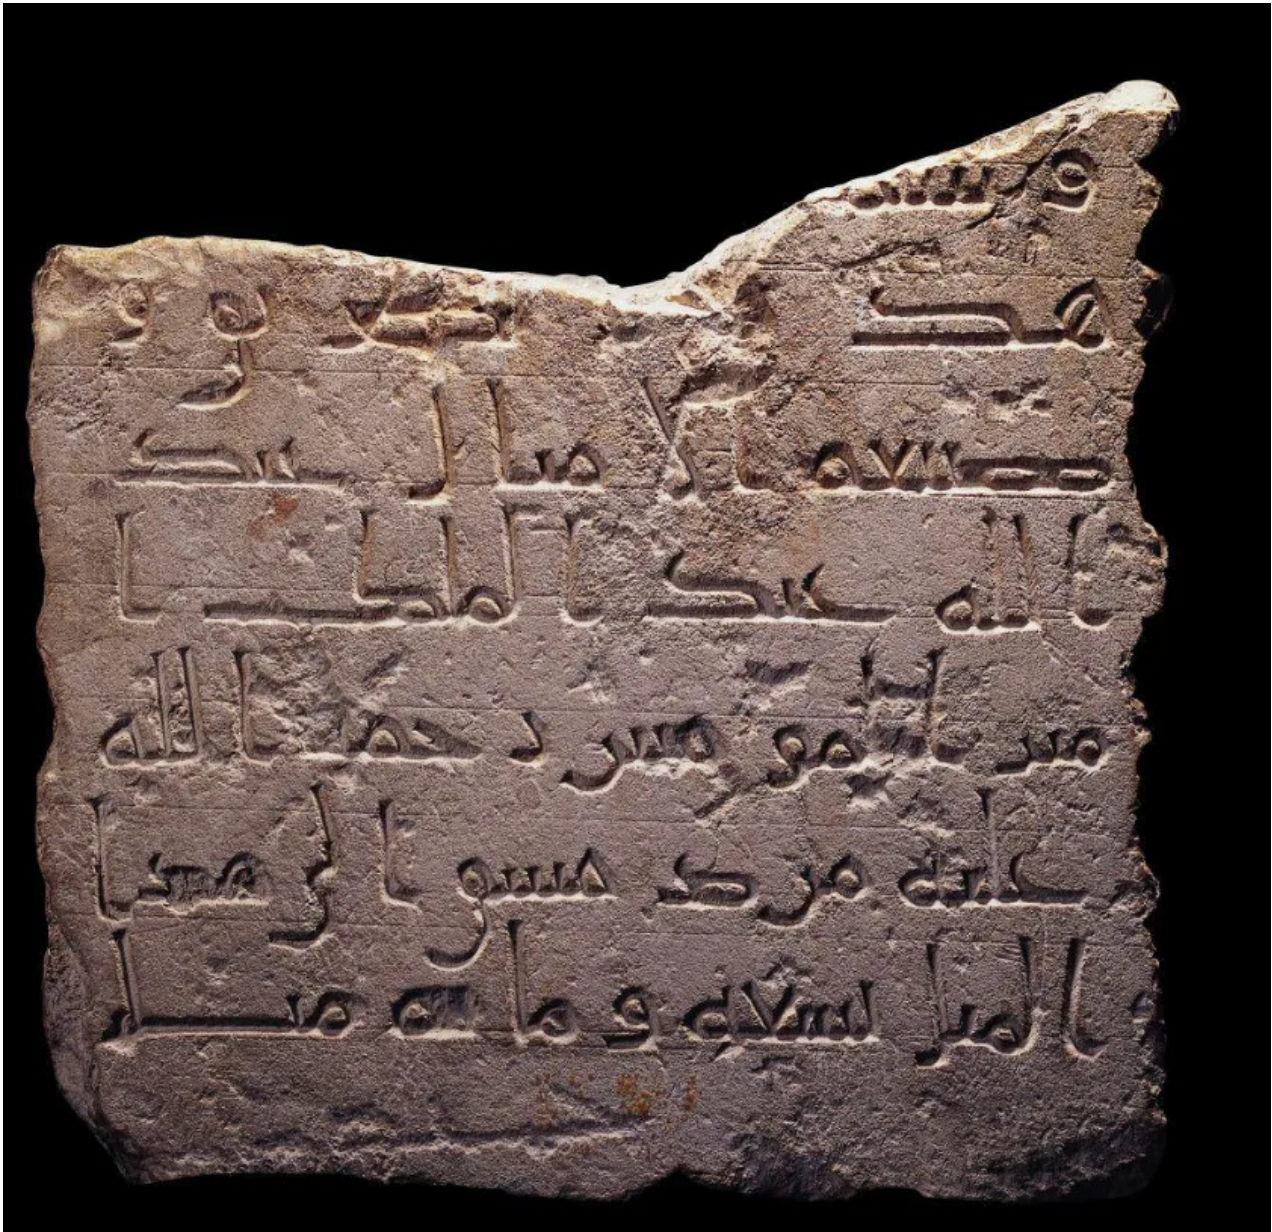 الطريق و
صنعة الاميال عبد
الله عبد الملك ا
مير المومنين رحمت الله
عليه من دمشق الى هذا
الميل تسعة ومائة ميل